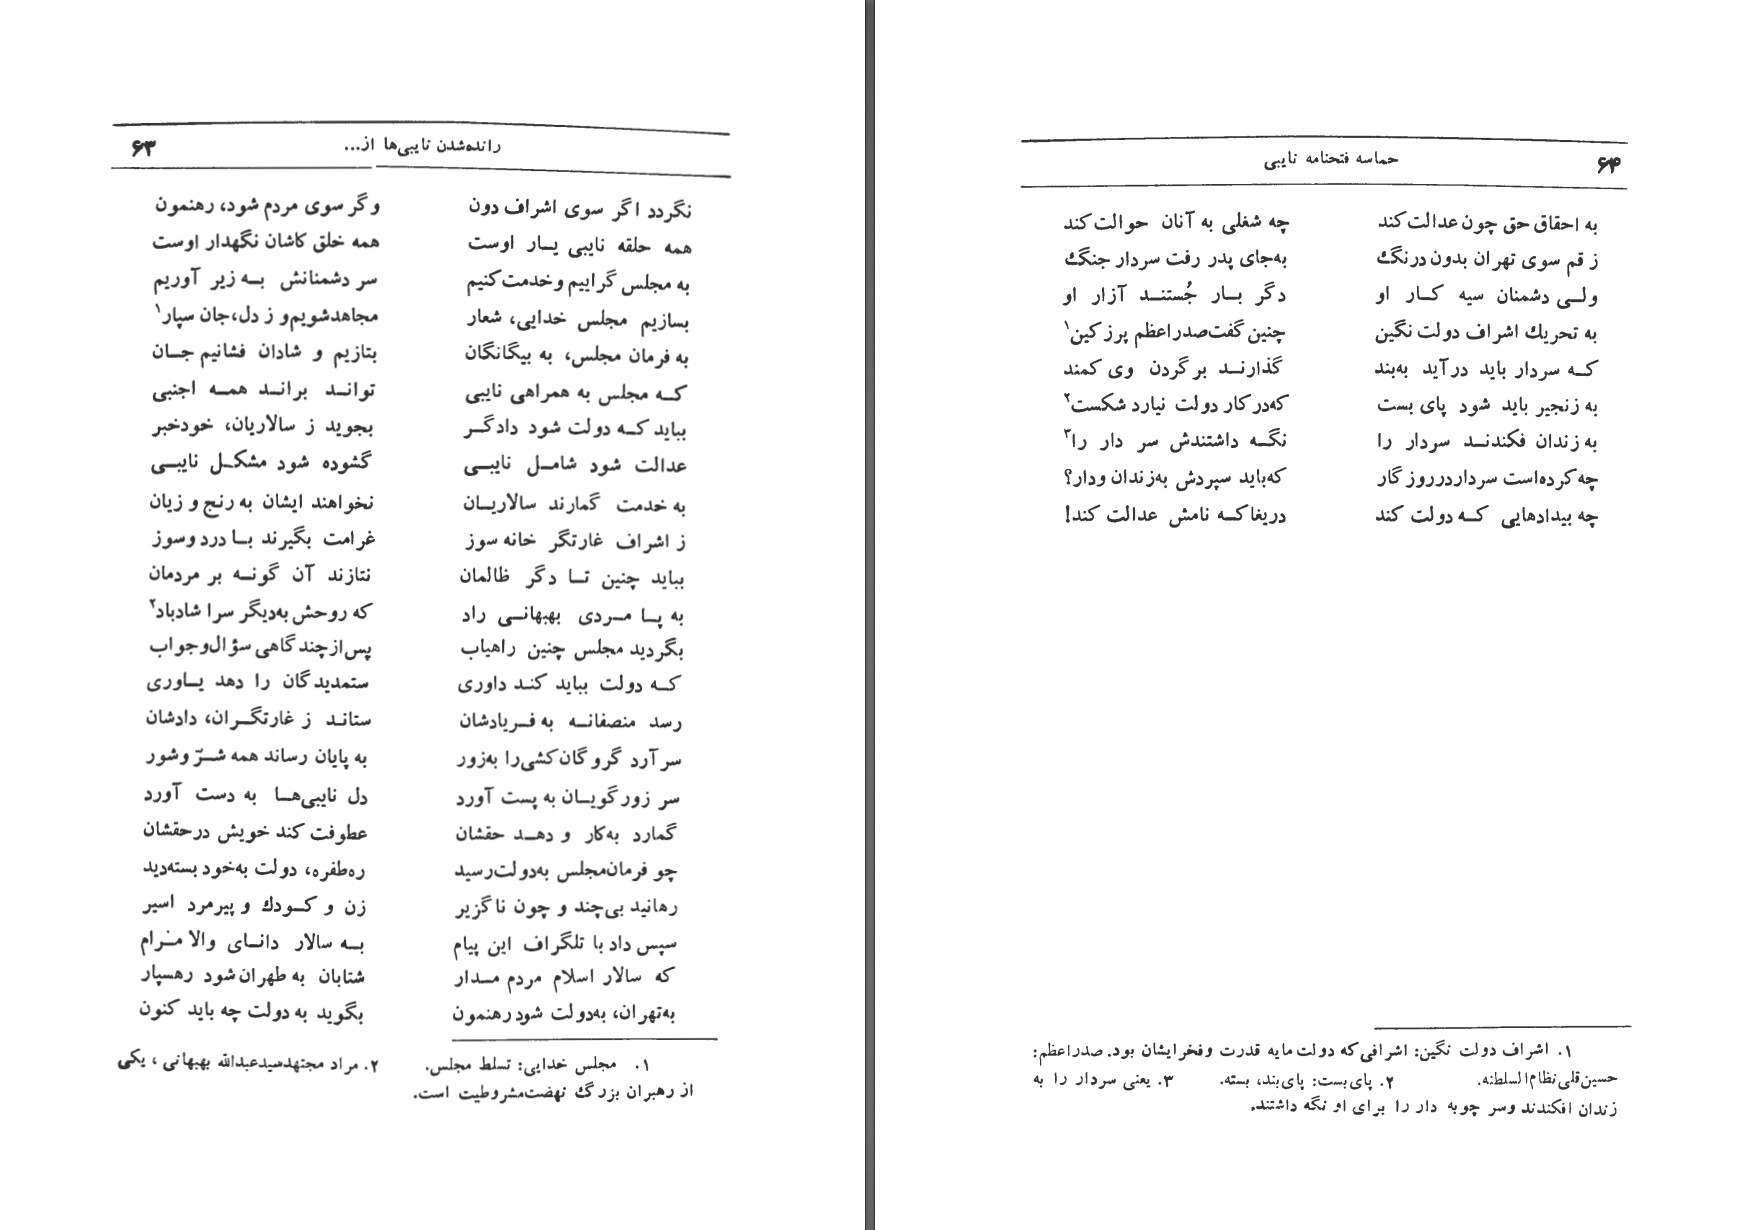 رانده‌شدن نایبی‌ها از... ۶۳
نگردد اگر سوی اشراف دون وگر سوی مردم شود، رهنمون
همه حلقه نایبی یار اوست همه خلق کاشان نگهدار اوست
به مجلس گراییم و خدمت کنیم سر دشمنانش به زیر آوریم
بسازیم مجلس خدایی، شعار مجاهد شویم و ز دل، جان سپار۱
به فرمان مجلس، به بیگانگان بتازیم و شادان فشانیم جان
که مجلس به همراهی نایبی تواند براند همه اجنبی
بباید که دولت شود دادگر بجوید ز سالاریان، خود خبر
عدالت شود شامل نایبی گشوده شود مشکل نایبی
به خدمت گمارند سالاریان نخواهند ایشان به رنج و زیان
ز اشراف غارتگر خانه سوز غرامت بگیرند با درد و سوز
بباید چنین تا دگر ظالمان نتازند آن گونه بر مردمان
به پا مردی بهبهانی راد که روحش به‌دیگر سرا شادباد۲
بگردید مجلس چنین راهیاب پس از چند گاهی سؤال و جواب
که دولت بباید کند داوری ستمدیدگان را دهد یاوری
رسد منصفانه به فریادشان ستاند ز غارتگران، دادشان
سر آرد گروگان‌کشی را به‌زور به پایان رساند همه شرّ و شور
سر زورگویان به پست آورد دل نایبی‌ها به دست آورد
گمارد به‌کار و دهد حقشان عطوفت کند خویش درحقشان
چو فرمان مجلس به‌دولت رسید ره‌طفره، دولت به‌خود بسته‌دید
رهانید بی‌چند و چون ناگزیر زن و کودك و پیرمرد اسیر
سپس داد با تلگراف این پیام به سالار دانای والا مرام
که سالار اسلام مردم مدار شتابان به طهران شود رهسپار
به‌تهران، به‌دولت شود رهنمون بگوید به دولت چه باید کنون
۱. مجلس خدایی: تسلط مجلس. ۲. مراد مجتهد سید عبدالله بهبهانی، یکی
از رهبران بزرگ نهضت مشروطیت است.
۶۴ حماسه فتحنامه نایبی
به احقاق حق چون عدالت کند چه شغلی به آنان حوالت کند
ز قم سوی تهران بدون درنگ به‌جای پدر رفت سردار جنگ
ولی دشمنان سیه کار او دگر بار جُستند آزار او
به تحریك اشراف دولت نگین چنین گفت صدراعظم پرز کین۱
که سردار باید درآید به‌بند گذارند برگردن وی کمند
به زنجیر باید شود پای بست که درکار دولت نیارد شکست۲
به زندان فکندند سردار را نگه داشتندش سر دار را۳
چه کرده‌است سردار در روزگار که باید سپردش به‌زندان و دار؟
چه بیدادهایی که دولت کند دریغا که نامش عدالت کند!
۱. اشراف دولت نگین: اشرافی که دولت مایه قدرت و فخر ایشان بود. صدراعظم:
حسین‌قلی نظام‌السلطنه. ۲. پای‌بست: پای‌بند، بسته. ۳. یعنی سردار را به
زندان افکندند و سر چوبه دار را برای او نگه داشتند.